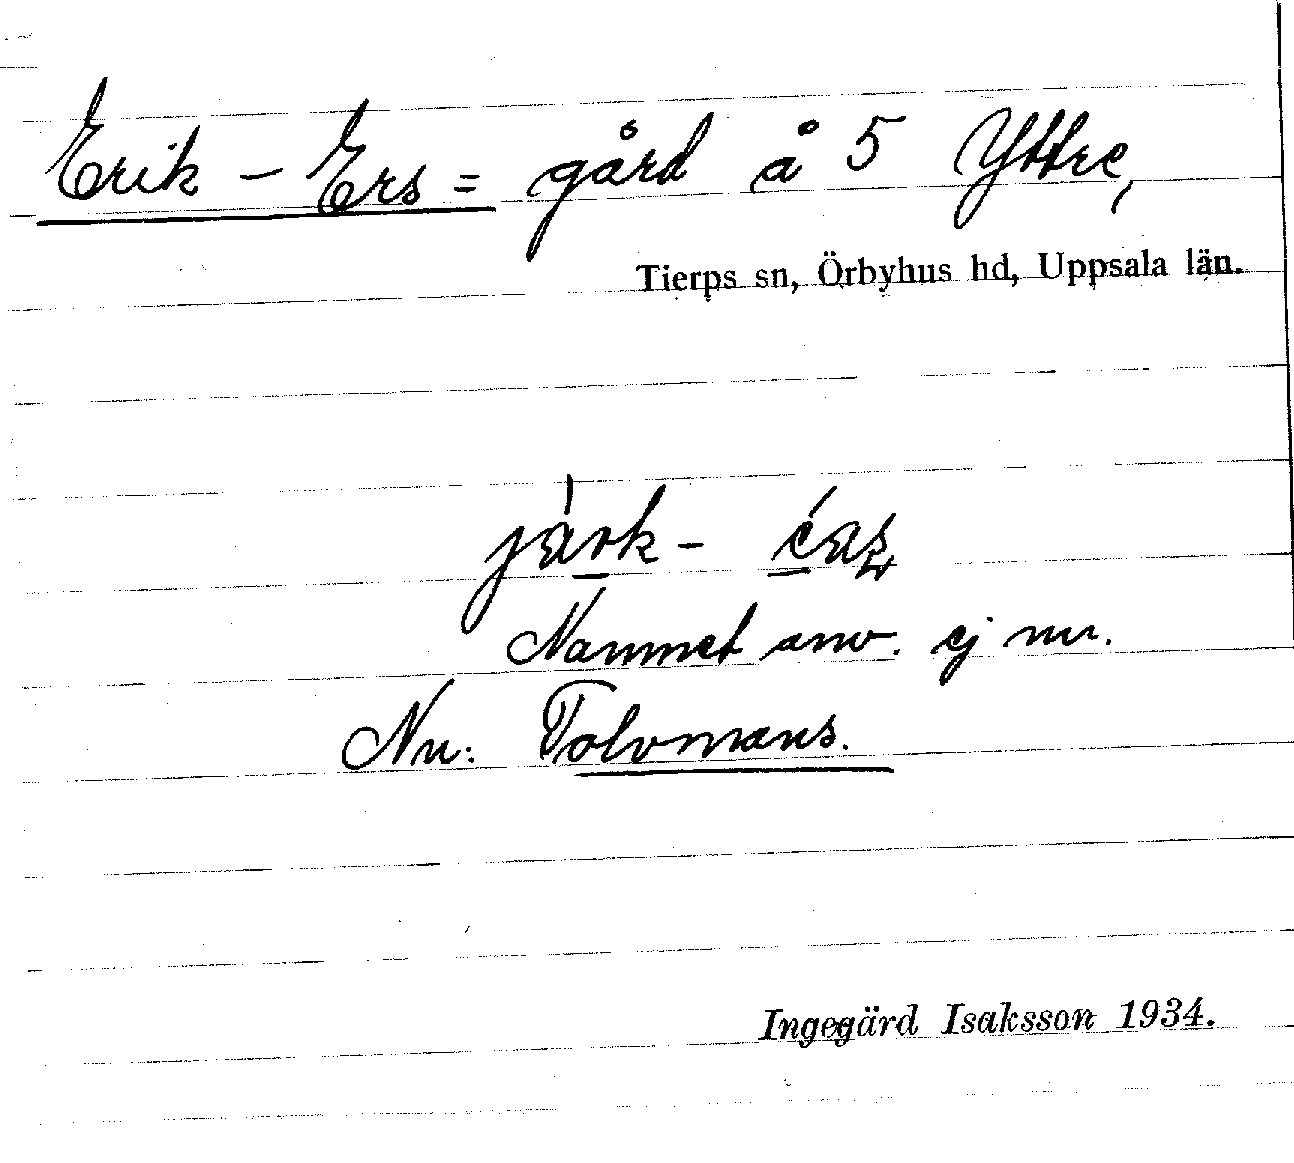 Erik - Ers = gård å 5 Yttre,
Tierps sn, Örbyhus hd, Uppsala län.
Namnet anv. ej nu.
Nu: Tolvmans.
Ingegärd Isaksson 1934.